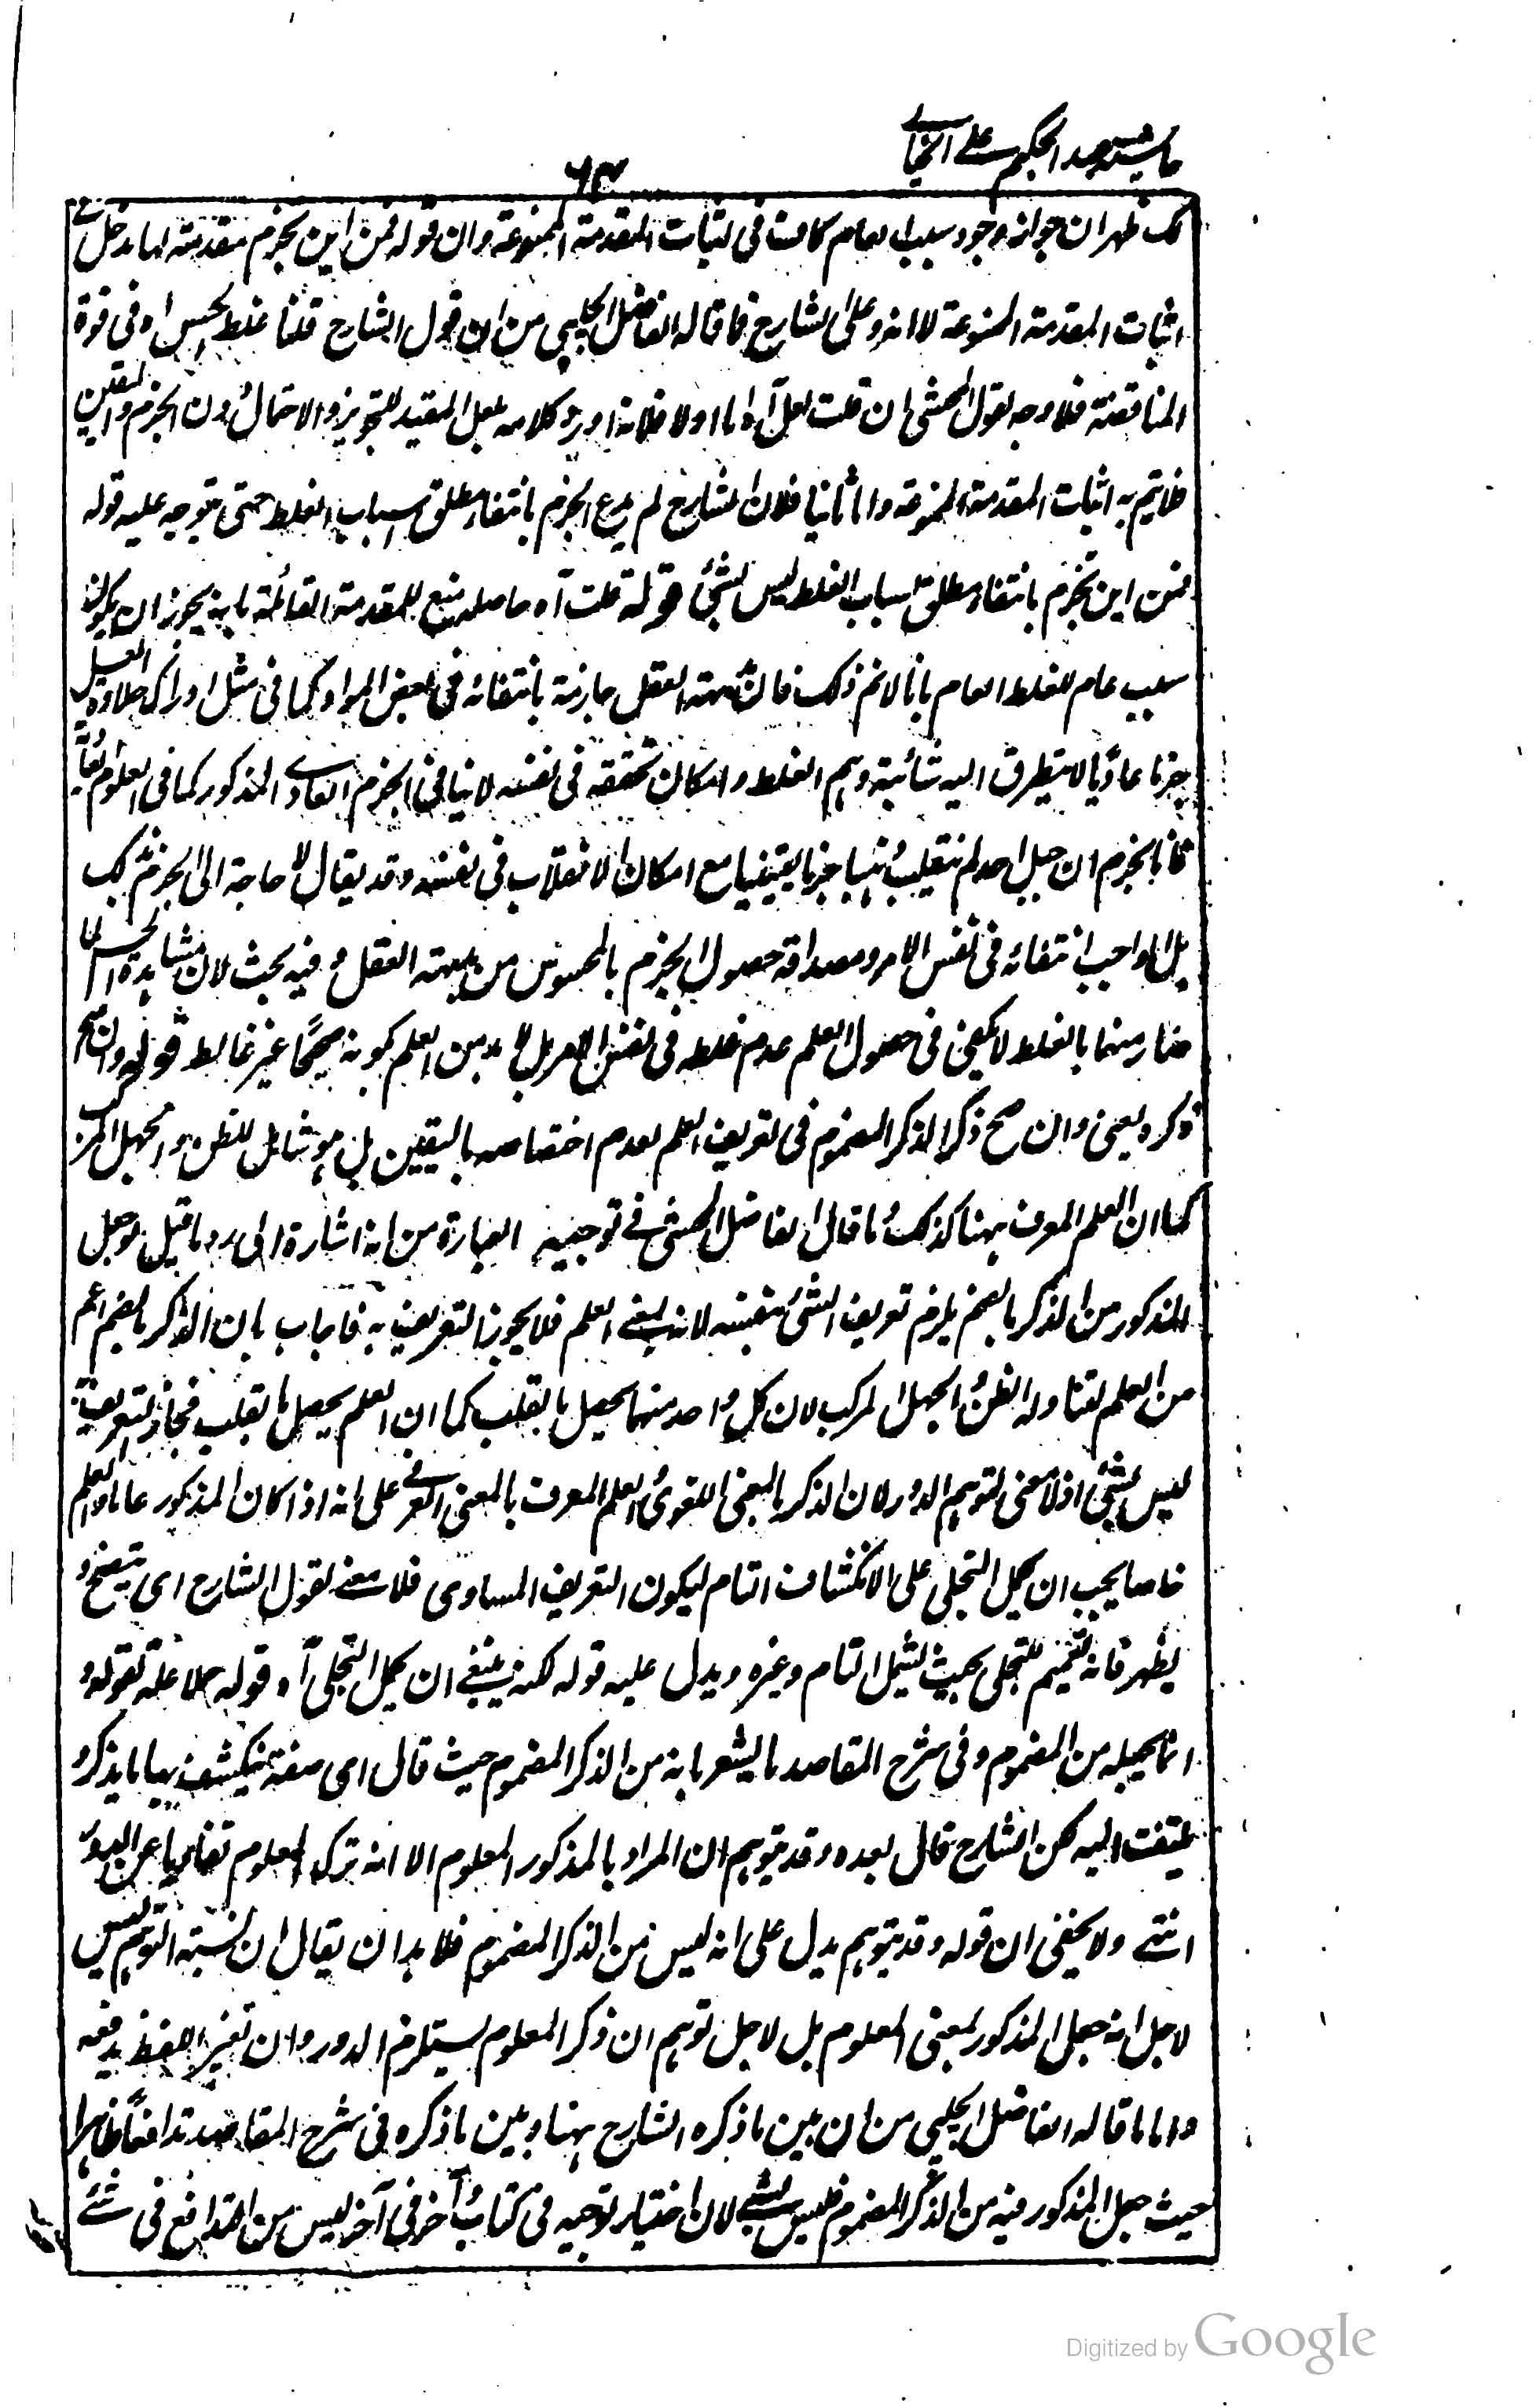 حاشية عبد الحكيم على الخيالي
٦٣
لك ظهر ان جواز وجود سبب عام كاف في اثبات المقدمة الممنوعة وان قوله فمن اين يجزم مقدمة لها دخل في
اثبات المقدمة الممنوعة لا انه رد على الشارح فما قاله الفاضل الچلپي من ان قول الشارح قلنا غلط الحس اه في قوة
المناقضة فلا وجه لقول المحشي ان قلت لعل آه اما اولا فلانه اورد كلامه بلعل المفيد للتجويز والاحتمال دون الجزم واليقين
فلا يتم به اثبات المقدمة الممنوعة واما ثانيا فلان الشارح لم يدع الجزم بانتفاء مطلق اسباب الغلط حتى يتوجه عليه قوله
فمن اين تجزم بانتفاء مطلق اسباب الغلط ليس بشئ قوله قلت آه حاصله منع للمقدمة القائلة بانه يجوز ان يكون
سبب عام للغلط العام بانا لا نم ذلك فان بديهة العقل جازمة بانتفائه في بعض المواد كما في مثل ادراك حلاوة العسل
جزما عاديا لا يتطرق اليه شائبة وهم الغلط وامكان تحققه في نفسه لا ينافي الجزم العادي المذكور كما في العلوم العادية
فانا نجزم ان جبل احد لم ينقلب ذهبا جزما يقينيا مع امكان الانقلاب في نفسه وقد يقال لا حاجة الى الجزم بذلك
بل الواجب انتفائه في نفس الامر ومصداقه حصول الجزم بالمحسوس من بديهة العقل وفيه بحث لان مشاهدة الحس لما
صار متهما بالغلط لا يكفي في حصول العلم عدم غلطه في نفس الامر بل لا بد من العلم بكونه صحيحا غير غالط قوله وان صح
ذكره يعني وان صح ذكر الذكر المضموم في تعريف العلم لعدم اختصاصه باليقين بل هو شامل للظن والجهل المركب
كما ان العلم المعرف ههنا كذلك وما قال الفاضل المحشي في توجيه العبارة من انه اشارة الى رد ما قيل لو جعل
المذكور من الذكر بالضم يلزم تعريف الشئ بنفسه لانه بمعنى العلم فلا يجوز التعريف به فاجاب بان الذكر بالضم اعم
من العلم لتناوله الظن والجهل المركب لان كل واحد منهما يحصل بالقلب كما ان العلم يحصل بالقلب فجاز التعريف به
ليس بشئ اذ لا معنى لتوهم الدور لان الذكر بالمعنى اللغوي والعلم المعرف بالمعنى العرفي على انه اذا كان المذكور عاما والعلم
خاصا يجب ان يحمل التجلي على الانكشاف التام ليكون التعريف المساوي فلا معنى لقول الشارح اى يتضح و
يظهر فانه تعميم للتجلي بحيث يشمل التام وغيره ويدل عليه قوله لكنه ينبغي ان يحمل التجلي آه قوله حملا علة لقوله و
انما يجعله من المضموم وفي شرح المقاصد ما يشعر بانه من الذكر المضموم حيث قال اى صفة ينكشف بها ما يذكر و
يلتفت اليه لكن الشارح قال بعده وقد يتوهم ان المراد بالمذكور المعلوم الا انه ترك المعلوم تفاديا عن الدور
انتهى ولا يخفى ان قوله وقد يتوهم يدل على انه ليس من الذكر المضموم فلا بد ان يقال ان نسبة التوهم ليس
لاجل انه جعل المذكور بمعنى المعلوم بل لاجل توهم ان ذكر المعلوم يستلزم الدور وان تغير اللفظ يدفعه
واما ما قاله الفاضل الچلپي من ان بين ما ذكره الشارح ههنا وبين ما ذكره في شرح المقاصد تدافعا ظاهرا
حيث جعل المذكور فيه من الذكر المضموم فليس بشئ لان اختيار توجيه في كتاب وآخر في آخر ليس من التدافع في شئ
Digitized by Google